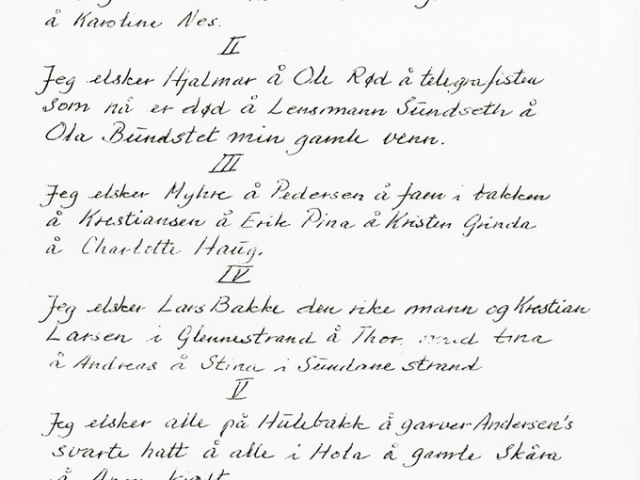 å Karotine Nes.
II
Jeg elsker Hjalmar å Ole Rød å telegrafisten
som nå er død å Lensmann Sundseth å
Ola Bundstet min gamle venn.
III
Jeg elsker Myhre å Pedersen å faen i bakken
å Krestiansen å Erik Pina å Kristen Grinda
å Charlotte Haug.
IV
Jeg elsker Lars Bakke den rike mann og Krestian
Larsen i Glennestrand å Thor, med tina
å Andreas å Stina i Sundane strand
V
Jeg elsker alle på Hulebakk å garver Andersen's
svarte hatt å alle i Hola å gamle Skåra